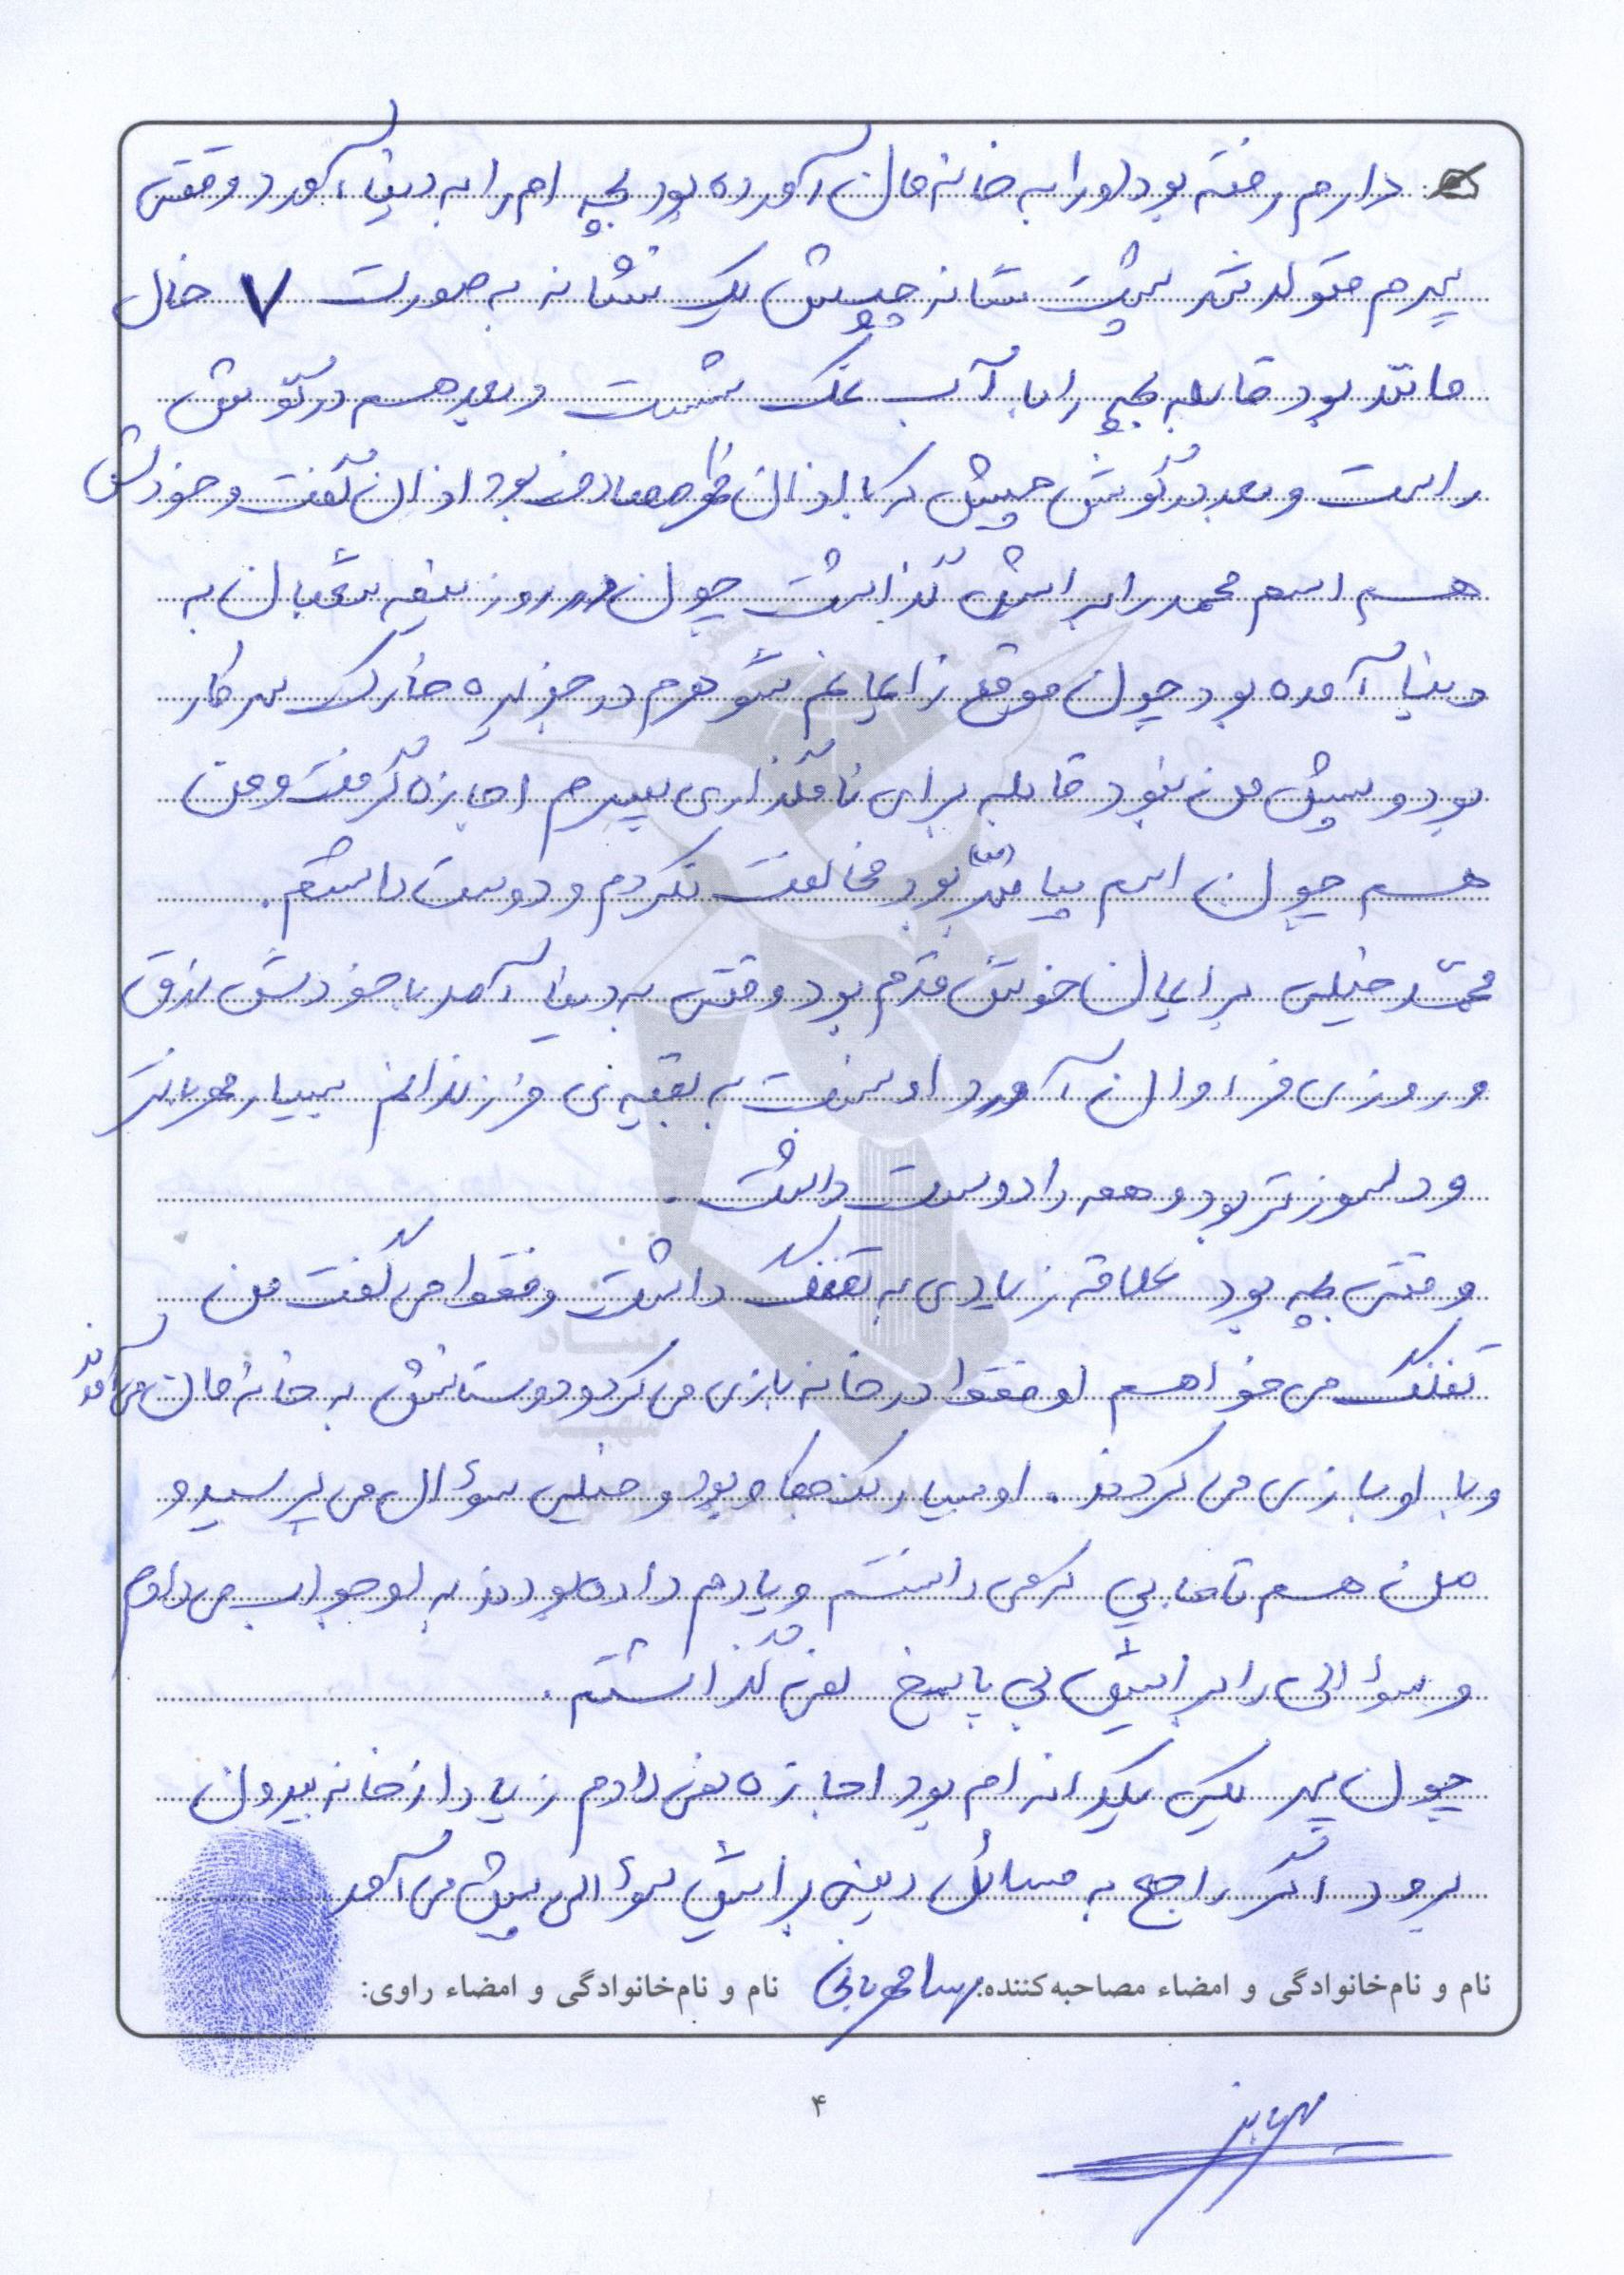 دارم رفته بود او را به خانه مان آورده بود بچه ام را به دنیا آورد وقتی
پسرم متولد شد پشت شانه چپش یک نشانه به صورت ۷ خال
مانند بود قابله بچه را با آب خنک شست و بعد هم در گوش
راست و بعد در گوش چپش که با اذان ظهر مصادف بود اذان گفت و خودش
هم اسم محمد را برایش گذاشت چون در روز نیمه شعبان به
دنیا آمده بود چون موقع زایمانم شوهرم در جزیره خارک سر کار
بود و پیش من نبود قابله برای نامگذاری پسرم اجازه گرفت و من
هم چون اسم پیامبر (ص) بود مخالفت نکردم و دوست داشتم.
محمّد خیلی برایمان خوش قدم بود وقتی به دنیا آمد با خودش رزق
و روزی فراوان آورد او نسبت به بقیه ی فرزندانم بسیار مهربانتر
و دلسوزتر بود و همه را دوست داشت.
وقتی بچه بود علاقه زیادی به تفنگ داشت و فقط می گفت من
تفنگ می خواهم او فقط در خانه بازی می کرد و دوستانش به خانه مان می آمدند
و با او بازی می کردند. او بسیار کنجکاو بود و خیلی سؤال می پرسید و
من هم تا جایی که می دانستم و یادم داده بودند به او جواب می دادم
و سؤالی را برایش بی پاسخ نمی گذاشتم.
چون پسر یکی یکدانه ام بود اجازه نمی دادم زیاد از خانه بیرون
برود اگر راجع به مسائل دینی برایش سؤالی پیش می آمد
نام و نام‌خانوادگی و امضاء مصاحبه‌کننده: نام و نام‌خانوادگی و امضاء راوی:
۴